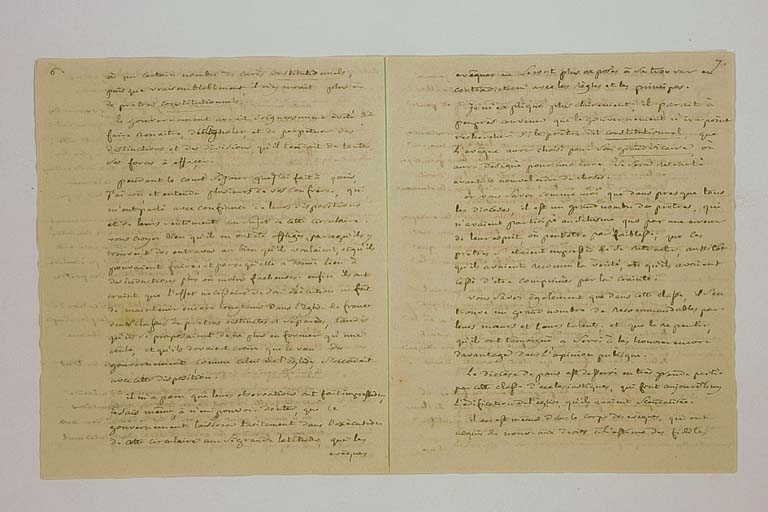 6
à un certain nombre de curés constitutionnels,
puis que vraisemblablement il n'y auroit plus
de prêtres constitutionnels.
le gouvernement avoit soigneusement évité de
faire renaitre, et de perpétuer des
distinctions et des divisions, qu'il tendait de toutes
ses forces à effacer.
pendant le court séjour que j'ai fait à paris,
j'ai vu et entendu plusieurs de vos confrères, qui
m'ont parlé avec confiance de leurs dispositions
et de leurs sentimens au sujet de cette circulaire.
vous croyez bien qu'ils en ont été affligés, parce qu'ils y
trouvent des entraves au bien qu'ils voulaient, et qu'ils
pouvaient faire, et parce qu'elle a donné lieu à
des inductions plus ou moins facheuses. enfin ils ont
craint que l'effet nécessaire de son exécution ne fut
de maintenir encore longtems dans l'église de france
deux classes de prêtres distinctes et séparées, tandis
qu'ils se proposaient de ne plus en former qu'une
seule, et qu'ils devaient croire que le voeu du
gouvernement comme celui de l'église
avec cette disposition.
il m'a paru que leurs observations ont fait impression,
je dois même à n'en pouvoir douter, que le
gouvernement laissera facilement dans l'exécution
de cette circulaire une si grande latitude, que les
evêques
7.
evêques ne seront plus exposés à se trouver en
contradiction avec les règles et les principes.
Je m'explique plus clairement: il parait à
peu près convenu que le gouvernement n'ira point
rechercher si le prêtre dit constitutionnel, que
l'evêque aura choisi pour son grand vicaire, ou
aura désigné pour une cure
avant le nouvel ordre de choses.
or vous savez comme moi que dans presque tous
les diocèses, il est un grand nombre de prêtres, qui
n'avaient participé au schisme que par une erreur
de leur esprit ou peutetre par faiblesse; que ces
prêtres s'étaient empressés de se rétracter, aussitôt
qu'ils avaient reconnu la vérité et qu'ils avaient
cessé d'être comprimés par la crainte.
vous savez également que dans cette classe, il s'en
trouve un grand nombre de recommandables par
leurs moeurs et leurs talens, et que le repentir,
qu'ils ont témoigné a servi à les honorer encore
davantage dans l'opinion publique.
Le diocèse de paris est desservi en très grande partie
par cette classe d'ecclésiastiques, qui font aujourd'huy
l'édification de l'église qu'ils avaient scandalisée.
il en est même dans le corps des evêques, qui ont
acquis de nouveaux droits à l'estime des fidèles